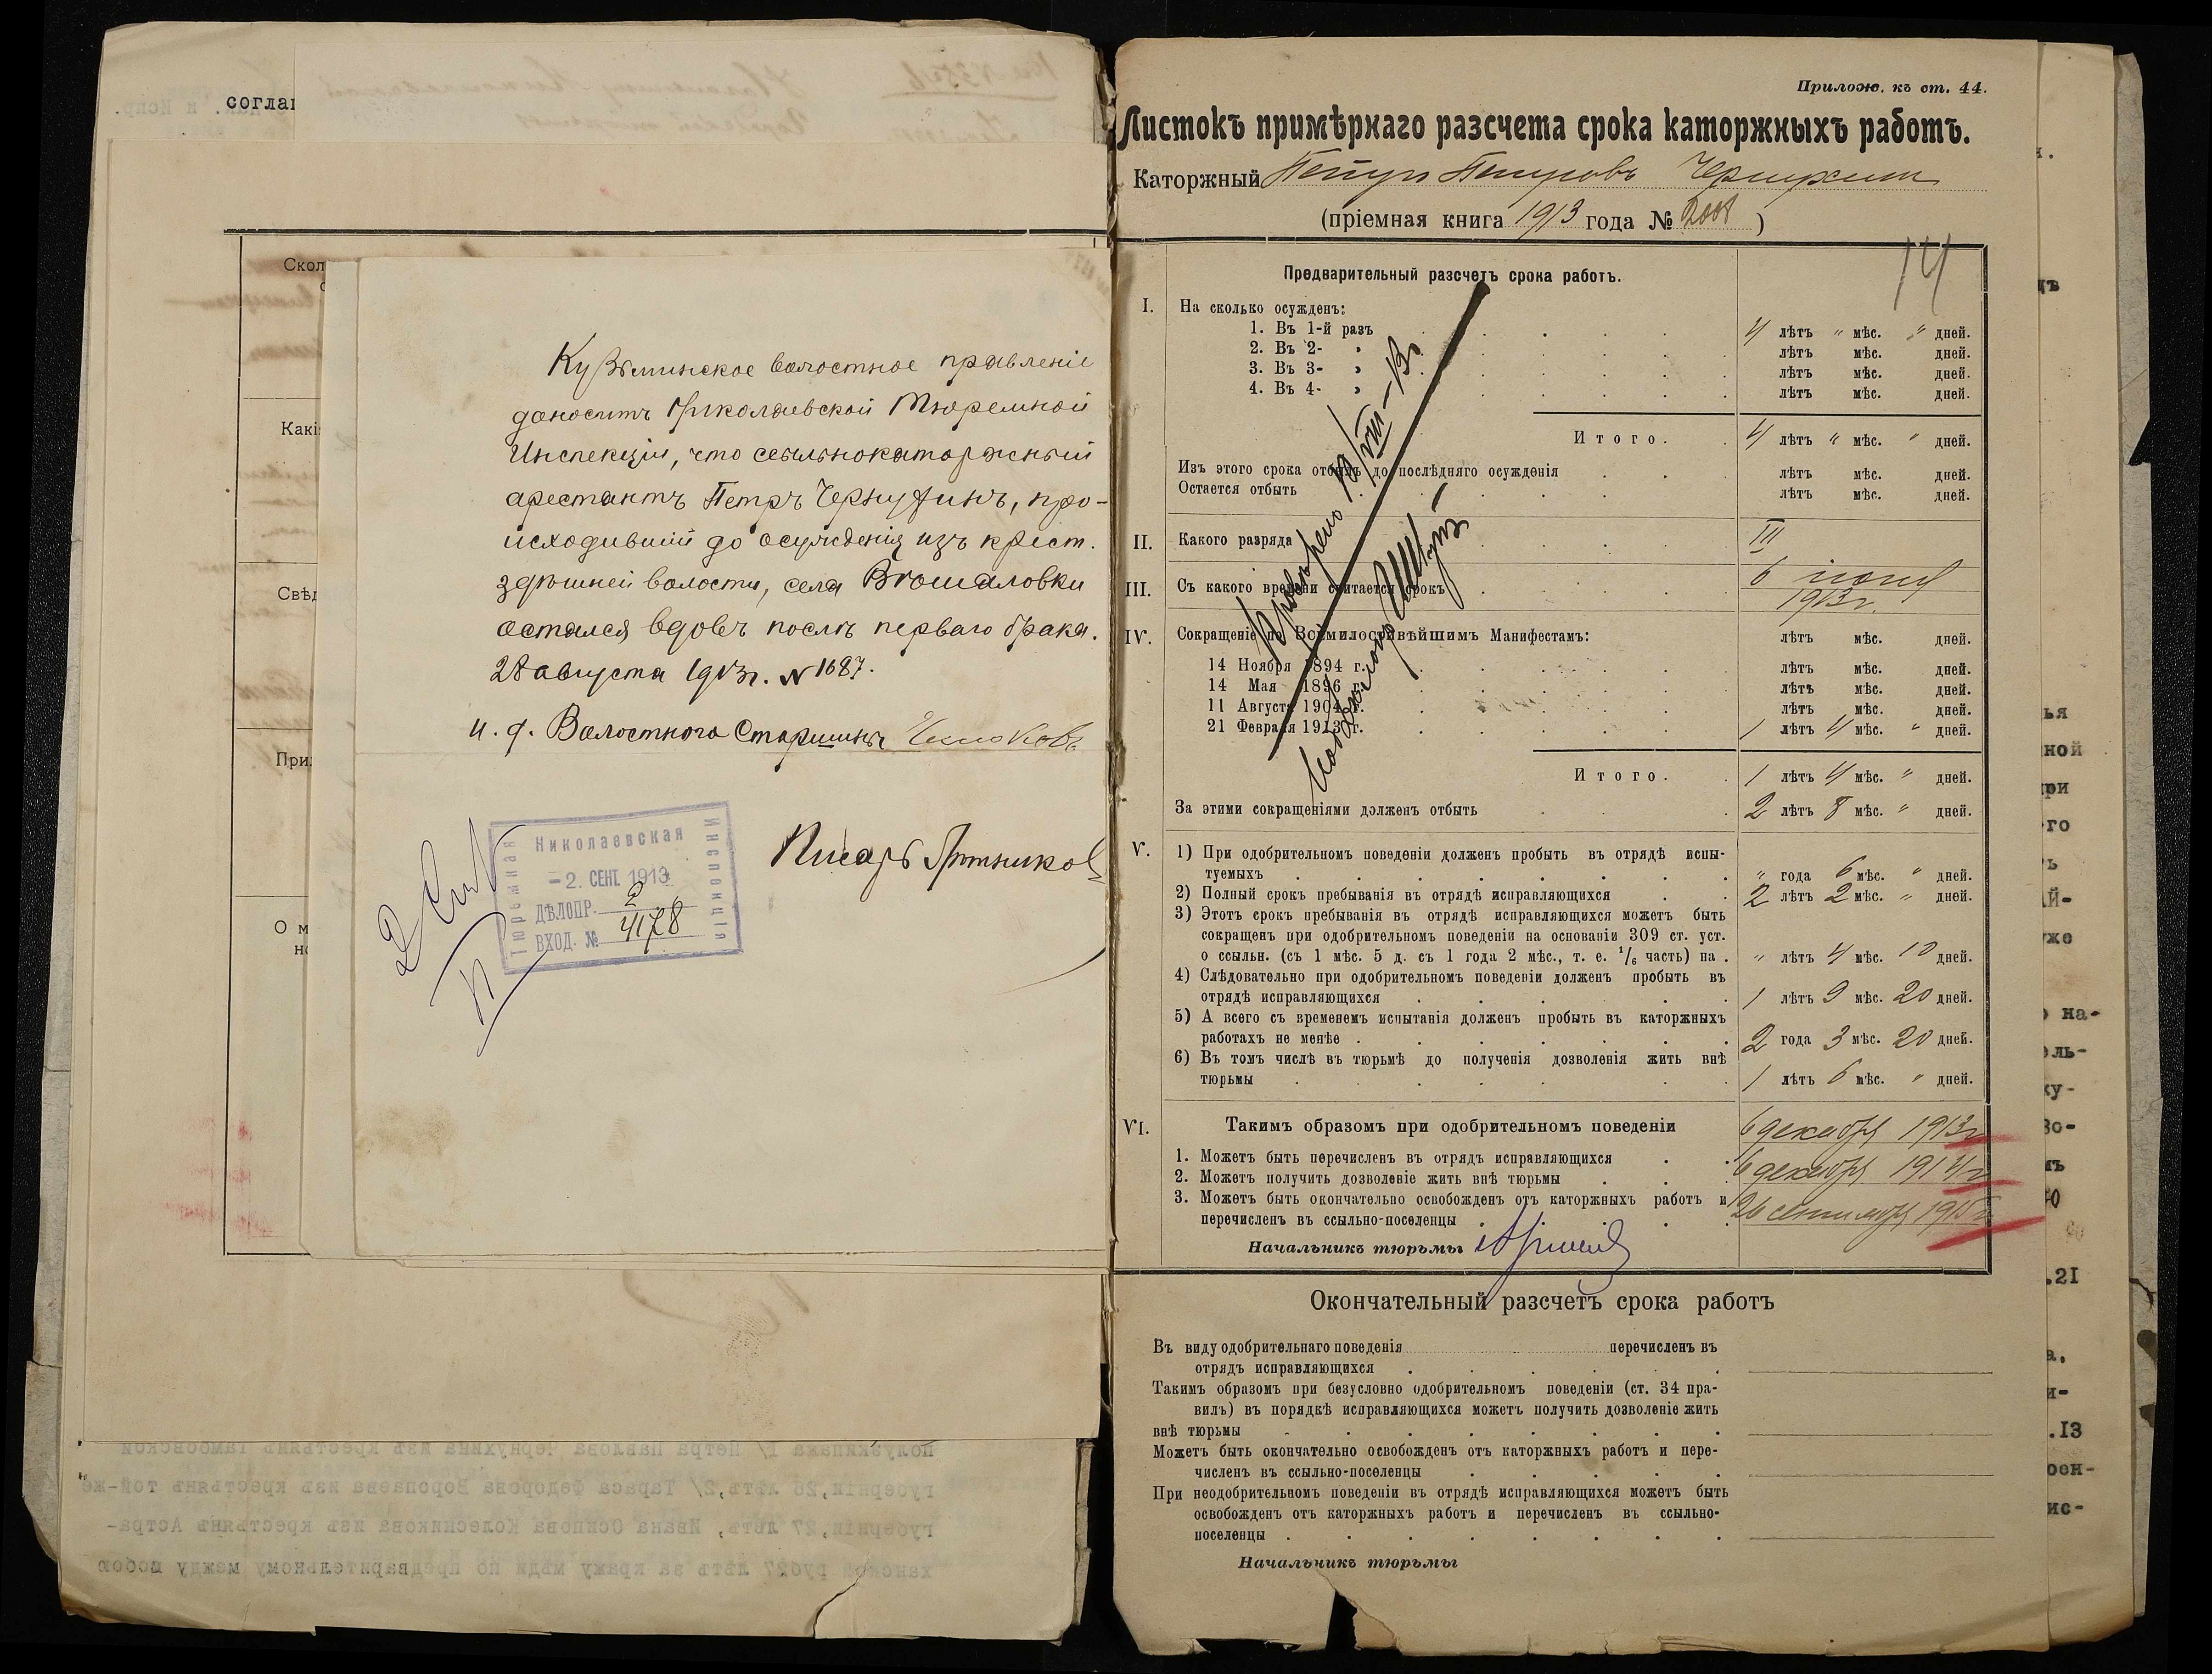 соглаг
Скол
Какі
Свѣд
При
О м
но
Кузьминское волостное правленіе
доноситъ Николаевской Тюремной
Инспекціи, что ссыльнокаторжный
арестантъ Петръ Чернухинъ, про-
исходившій до осужденія изъ крест.
здѣшней волости, села
остался вдовъ послѣ перваго брака.
28 августа 1913 г. № 1687.
И. д. Волостного Старшины
Писарь
Николаевская
Тюремная
Инспекція
- 2. СЕНТ. 1913
ДѢЛОПР. 2
ВХОД. № 4178
2 Сент
полуэкипажа 1/ Петра Павлова Чернухина изъ крестьянъ Тамбовской
губерніи, 26 лѣтъ, 2/ Тараса Федорова Воропаева изъ крестьянъ той-же
губерніи, 27 лѣтъ, Ивана Осипова Колесникова изъ крестьянъ Астра-
ханской губ 27 лѣтъ за кражу мѣди по предварительному между собою
Прилож. къ ст. 44.
Листокъ примѣрнаго разсчета срока каторжныхъ работъ.
Каторжный Петръ Петровъ Чернухин
(пріемная книга 1913 года № 2008 )
14
Предварительный разсчетъ срока работъ.
I. На сколько осужденъ:
1. Въ 1-й разъ 4 лѣтъ " мѣс. " дней.
2. Въ 2- » лѣтъ мѣс. дней.
3. Въ 3- » лѣтъ мѣс. дней.
4. Въ 4- » лѣтъ мѣс. дней.
Итого. 4 лѣтъ " мѣс. " дней.
Изъ этого срока отбылъ до послѣдняго осужденія лѣтъ мѣс. дней.
Остается отбыть лѣтъ мѣс. дней.
II. Какого разряда III
III. Съ какого времени считается срокъ 6 іюня
1913 г.
IV. Сокращеніе по Всемилостивѣйшимъ Манифестамъ: лѣтъ мѣс. дней.
14 Ноября 1894 г. лѣтъ мѣс. дней.
14 Мая 1896 г. лѣтъ мѣс. дней.
11 Августа 1904 г. лѣтъ мѣс. дней.
21 Февраля 1913 г. 1 лѣтъ 4 мѣс. " дней.
Итого. 1 лѣтъ 4 мѣс. " дней.
За этими сокращеніями долженъ отбыть 2 лѣтъ 8 мѣс. " дней.
V. 1) При одобрительномъ поведеніи долженъ пробыть въ отрядѣ испы-
туемыхъ " года 6 мѣс. " дней.
2) Полный срокъ пребыванія въ отрядѣ исправляющихся 2 лѣтъ 2 мѣс. " дней.
3) Этотъ срокъ пребыванія въ отрядѣ исправляющихся можетъ быть
сокращенъ при одобрительномъ поведеніи на основаніи 309 ст. уст.
о ссыльн. (съ 1 мѣс. 5 д. съ 1 года 2 мѣс., т. е. 1/6 часть) на . " лѣтъ 4 мѣс. 10 дней.
4) Слѣдовательно при одобрительномъ поведеніи долженъ пробыть въ
отрядѣ исправляющихся 1 лѣтъ 9 мѣс. 20 дней.
5) А всего съ временемъ испытанія долженъ пробыть въ каторжныхъ
работахъ не менѣе 2 года 3 мѣс. 20 дней.
6) Въ томъ числѣ въ тюрьмѣ до полученія дозволенія жить внѣ
тюрьмы 1 лѣтъ 6 мѣс. " дней.
VI. Такимъ образомъ при одобрительномъ поведеніи
1. Можетъ быть перечисленъ въ отрядъ исправляющихся 6 декабря 1913 г
2. Можетъ получить дозволеніе жить внѣ тюрьмы 6 декабря 1914 г
3. Можетъ быть окончательно освобожденъ отъ каторжныхъ работъ и
перечисленъ въ ссыльно-поселенцы 26 сентября 1915 г
Начальникъ тюрьмы
Провѣрено VIII-13 г.
Окончательный разсчетъ срока работъ
Въ виду одобрительнаго поведенія перечисленъ въ
отрядъ исправляющихся
Такимъ образомъ при безусловно одобрительномъ поведеніи (ст. 34 пра-
вилъ) въ порядкѣ исправляющихся можетъ получить дозволеніе жить
внѣ тюрьмы
Можетъ быть окончательно освобожденъ отъ каторжныхъ работъ и пере-
численъ въ ссыльно-поселенцы
При неодобрительномъ поведеніи въ отрядѣ исправляющихся можетъ быть
освобожденъ отъ каторжныхъ работъ и перечисленъ въ ссыльно-
поселенцы
Начальникъ тюрьмы
ья
ной
при
го
уже
на-
ль-
ку-
.21
.13
оен-
ис-